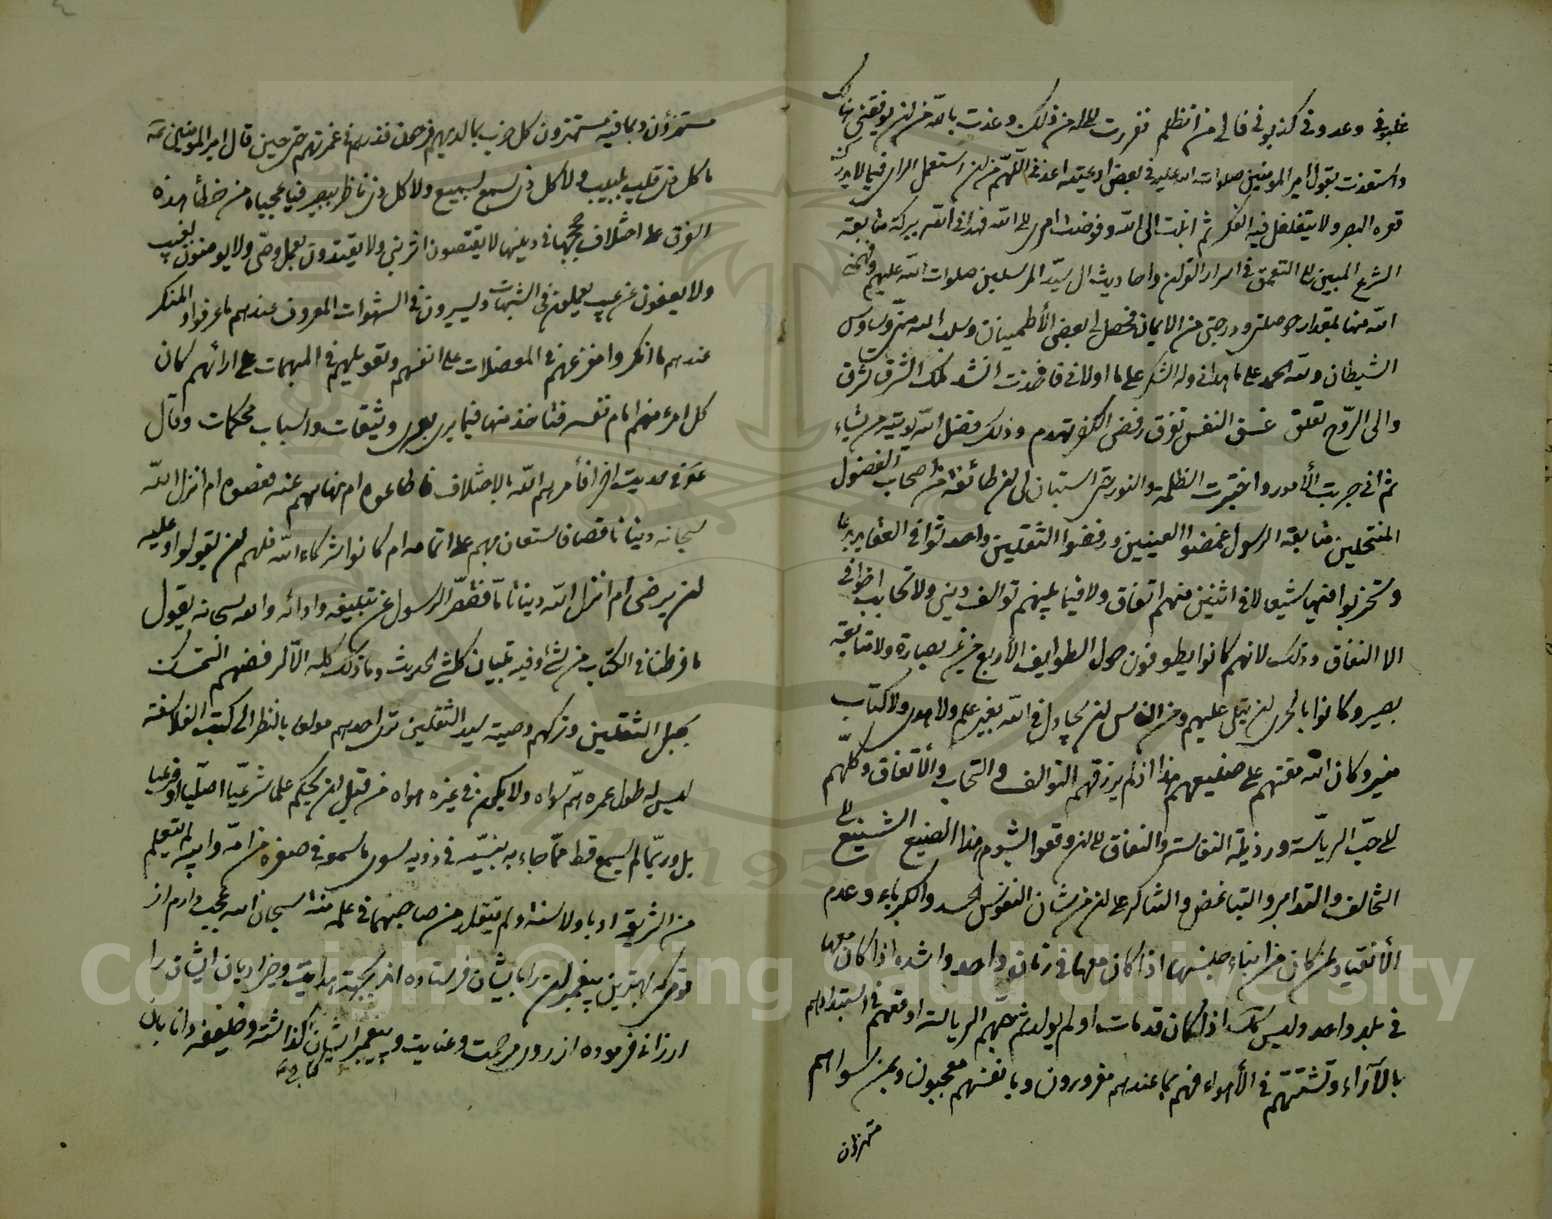 غلبوني وعدوني كذبوني قالي من انظلم ففررت الى الله من ذلك وعذت بالله من ان يوقفني هنالك
واستعذت بقول امير المؤمنين صلوات الله عليه في بعض ادعيته اعذني اللهم من ان استعمل الراى فيما لا يدرك
قعره البصر ولا يتغلغل فيه الفكر ثم انبت الى الله وفوضت امرى الى الله فهداني الله ببركة متابعة
الشرع المبين الى التعمق في اسرار القران واحاديث ال سيد المرسلين صلوات الله عليهم وفهمني
الله منها بمقدار حوصلتي ودرجتي من الايمان فحصل لي بعض الأطمينان وسلب الله مني وساوس
الشيطان ولله الحمد على ما هداني وله الشكر على ما اولاني فاخذت انشد ملك الشرق تشرق
والى الروح تعلق غسق النفس تفرق ربض الكفر تهدم وذلك فضل الله يؤتيه من يشاء
ثم اني جربت الأمور واختبرت الظلمة والنور حتى استبان لي ان طائفة من اصحاب الفضول
المنتحلين متابعة الرسول غمضوا العينين ورفضوا الثقلين واحدثوا في العقايد بدعا
وتحزبوا فيها شيعا لا في اثنين منهم اتفاق ولا فيما بينهم توالف ديني ولا تحابب اخوانى
الا النفاق وذلك لانهم كانوا يطوفون حول الطوايف الأربع من غير بصارة ولا متابعة
بصير وكانوا بالحرى ان يتلى عليهم ومن الناس من يجادل في الله بغير علم ولا هدى ولا كتاب
منير وكان الله مقتهم على صنيعهم هذا اذ لم يرزقهم التوالف والتحاب والأتفاق وكلهم
الى حب الرياسة ورذيلة النفاسة والنفاق الى ان وقعوا لشوم هذا الصنيع الشنيع الى
التخالف والتدابر والتباغض والتناكر على ان من شان النفوس الحسد والكبرياء وعدم
الأنقياد لمن كان من ابناء جنسها اذا كان معها في زمان واحد واشده اذا كان معها
في بلد واحد وليس كذلك اذا كان قد مات او لم يولد ثم حبهم الرياسة اوقعهم في استبدادهم
بالآراء وتشتتهم في الأهواء فهم بما عندهم مغرورون وبانفسهم معجبون وبمن سواهم
مستهزؤن
مستهزؤن وبما فيه مستهترون كل حزب بما لديهم فرحون فذرهم في غمرتهم حتى حين قال امير المؤمنين عه
ما كل ذي قلب بلبيب ولا كل ذي سمع بسميع ولا كل ذي ناظر ببصير فيا عجباه من خطأ هذه
الفرق على اختلاف حججها في دينها لا يقتصون اثر نبي ولا يقتدون بعمل وصي ولا يومنون بغيب
ولا يعفون عن عيب يعملون في الشبهات ويسيرون في الشهوات المعروف عندهم ما عرفوا والمنكر
عندهم ما انكروا مفزعهم في المعضلات على انفسهم وتعويلهم في المبهمات على ارائهم كان
كل امرء منهم امام نفسه قد اخذ منها فيما يرى بعرى وثيقات واسباب محكمات وقال
عه في حديث اخر افأمرهم الله بالاختلاف فاطاعوه ام نهاهم عنه فعصوه ام انزل الله
سبحانه دينا ناقصا فاستعان بهم على اتمامه ام كانوا شركاء الله فلهم ان يقولوا وعليه
ان يرضى ام انزل الله دينا تاما فقصر الرسول عن تبليغه وادائه والله سبحانه يقول
ما فرطنا في الكتاب من شئ وفيه تبيان كل شئ الحديث وما ذلك كله الا لرفضهم التمسك
بحبل الثقلين وتركهم وصية سيد الثقلين ترى احدهم مولعا بالنظر الى كتب الفلاسفة
ليس له طول عمره هم سواه ولا يكون في غيره هواه من قبل ان يحكم علما شرعيا اصليا او فرعيا
بل وربما لم يسمع قط مما جاء به نبيه في دينه سوى ما سمعه في صغره من امه وابيه لم يتعلم
من الشريعة ادبا ولا سنة ولم يتقلد من صاحبها في علمه منة سبحان الله عجب دارم از
قومى كه بهترين پيغمبران را بايشان فرستاده اند بجهة هدايت وخير اديان ايشان را
ارزانى فرموده از روى مرحمت وعنايت وپيغمبر ايشان كتابى گذاشته وخليفه دانا بان
كتاب